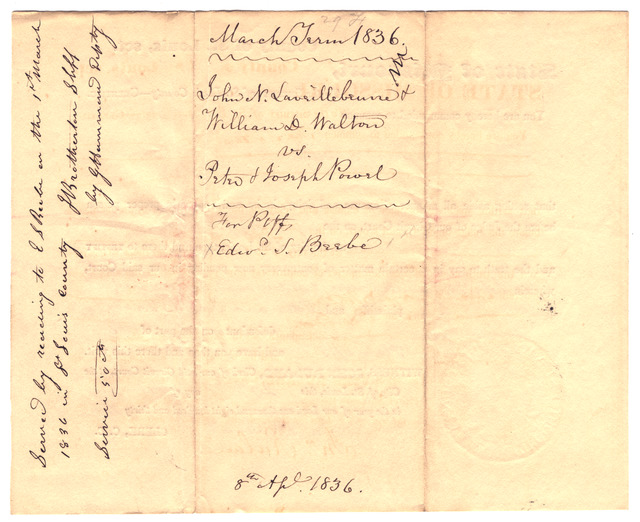 March Term 1836.
John N. Laveillebeuvre &
William D. Walton
vs.
Peter & Joseph Powel
For Plff
Edwd. S. Beebe
8th Apl. 1836.
Served by reading to E S Beebe on the 1st March
1836 in St Louis County J Brotherton Shff
by G Hammond Dpty
Service 50 cts